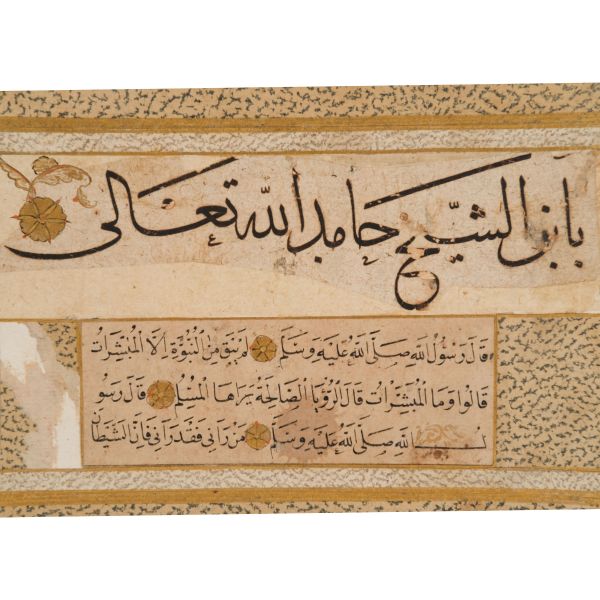 بابن الشيخ حامد الله تعالى
قَالَ رَسُولُ اللهِ صَلَّى اللهُ عَلَيْهِ وَسَلَّمَ لَمْ يَبْقَ مِنَ النُّبُوَّةِ اِلَّا الْمُبَشِّرَاتُ
قَالُوا وَمَا الْمُبَشِّرَاتُ قَالَ الرُّؤْيَا الصَّالِحَةُ يَرَاهَا الْمُسْلِمُ قَالَ رَسُو
لُ اللهِ صَلَّى اللهُ عَلَيْهِ وَسَلَّمَ مَنْ رَاٰنِى فَقَدْ رَاٰنِى فَاِنَّ الشَّيْطَانَ